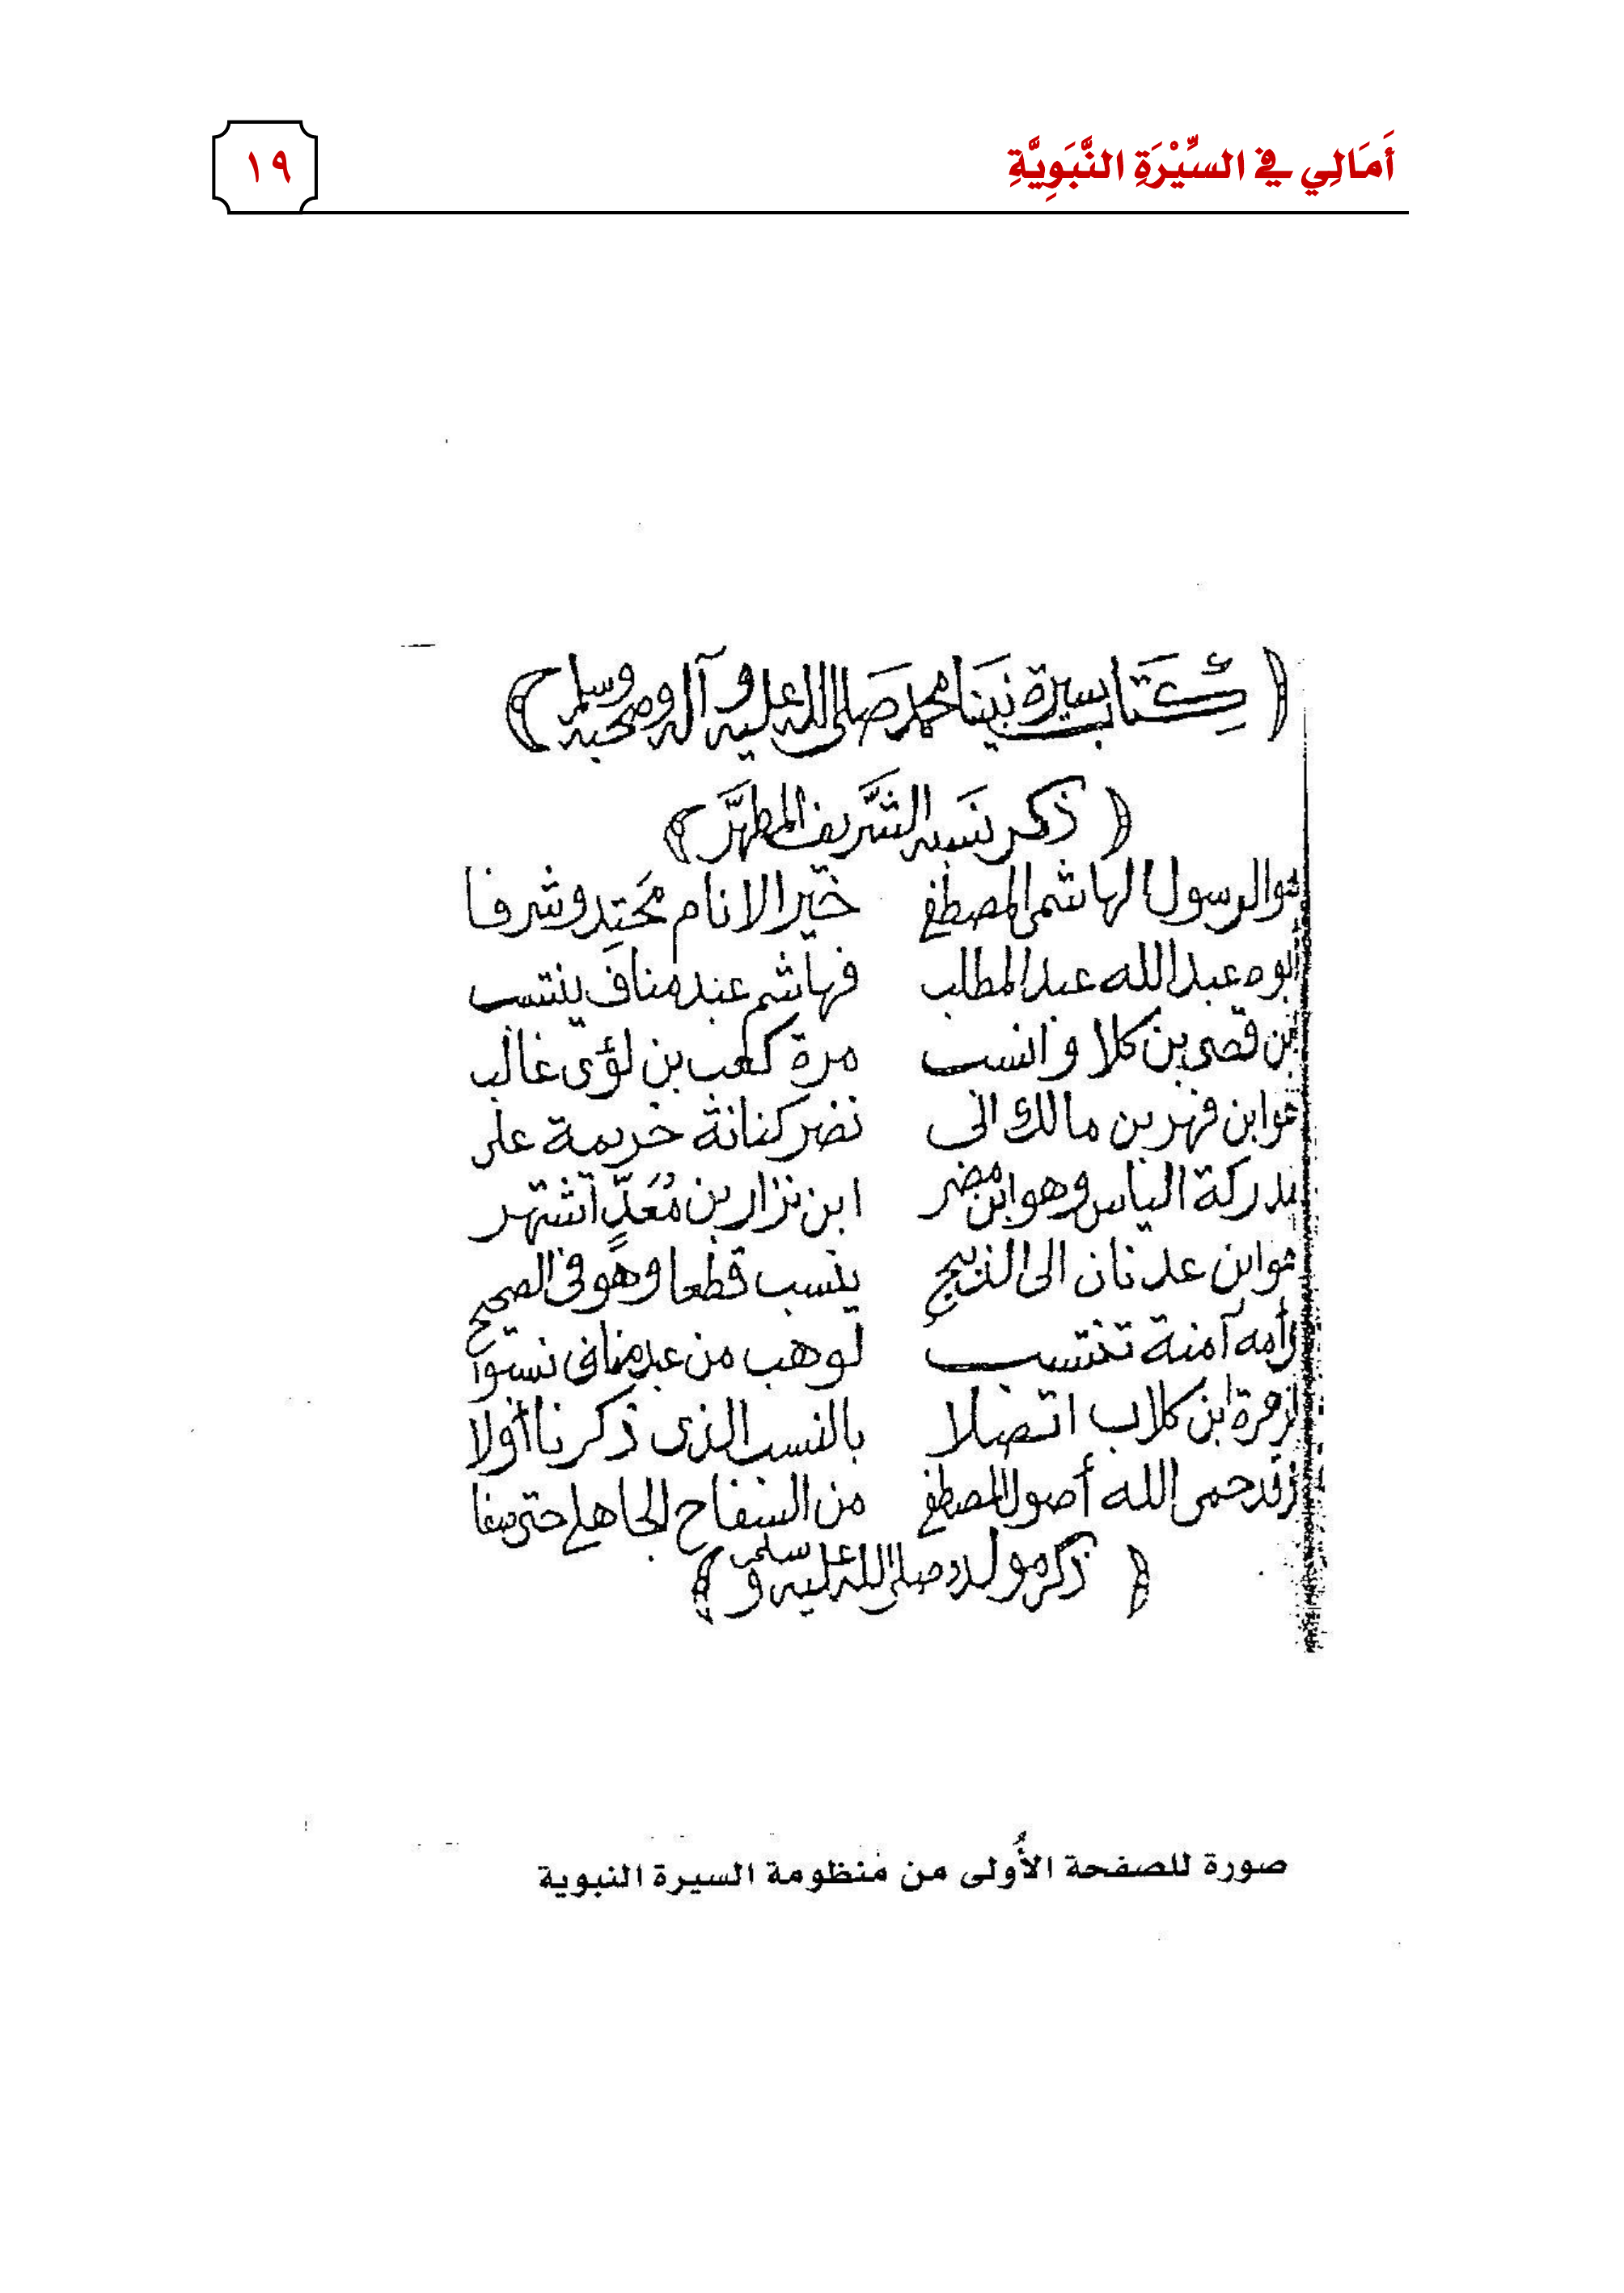 أَمَالِي في السِّيْرَةِ النَّبَوِيَّةِ
١٩
﴿ كتاب سيرة نبينا محمد صلى الله عليه وآله وصحبه وسلم ﴾
﴿ ذكر نسبه الشَّريف المطهَّر ﴾
هو الرسول الهاشمى المصطفى خَير الانام مَحتِد وشرفا
ابوه عبد الله عبد المطلب فهاشم عبد مناف ينتسب
بن قصى بن كلا وانسب مرة كعب بن لؤى غالب
هو ابن فهر بن مالك الى نضر كنانة خزيمة على
مدركة الياس وهو ابن مضر ابن نزار بن مُعَدٍّ اشتهر
هو ابن عدنان الى الذبيح ينسب قطعا وهو فى الصحيح
وأمه آمنة تنتسب لوهب من عبد مناف
زهرة ابن كلاب اتصلا بالنسب الذى ذكرنا أولا
وقد حمى الله أصول المصطفى من السفاح الجاهلى حتى
﴿ ذكر مولده صلى الله عليه وسلم ﴾
صورة للصفحة الأُولى من منظومة السيرة النبوية